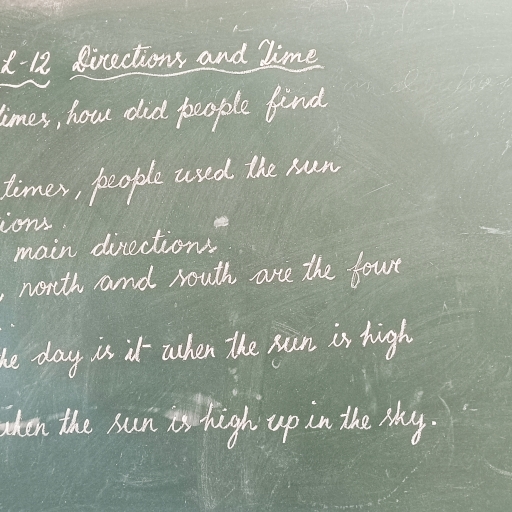 L-12 Directions and Time
times, how did people find
times, people used the sun
ions.
main directions.
, north and south are the four
he day is it when the sun is high
when the sun is high up in the sky.